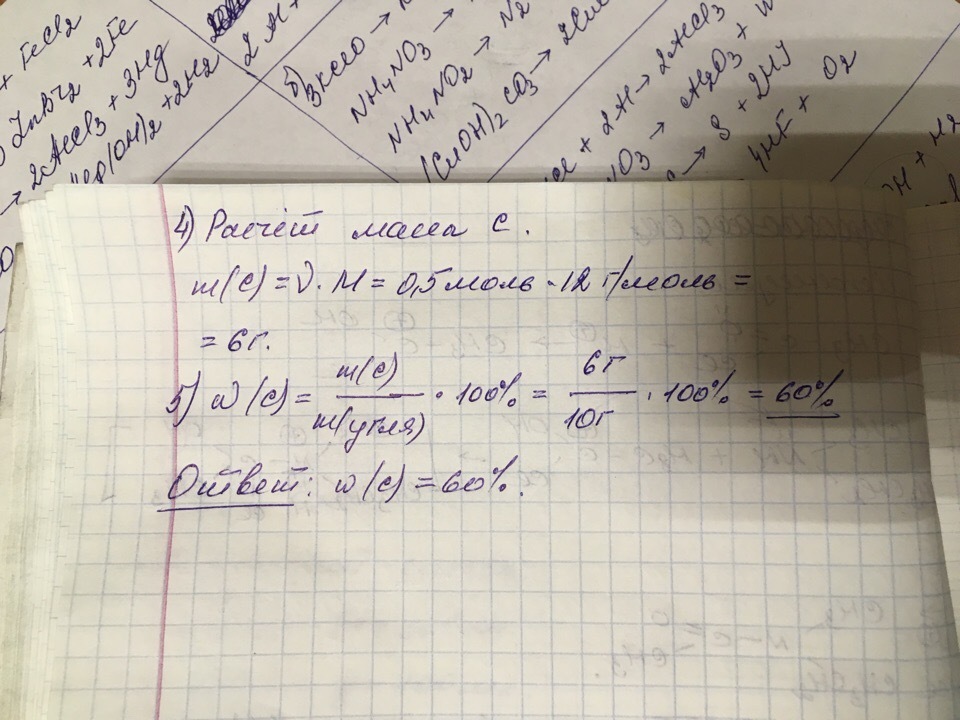 + FeCl2
ZnBr2 + 2Fe
→ 2AlCl3 + 3Hg
(OH)2 + 2H2
б) 3KClO →
NH4NO3 →
NH4NO2 → N2
(CuOH)2CO3 →
+ 2Al → 2AlCl3
Al2O3 +
→ S + 2HJ
4HF + O2
+ H2
4) Расчёт масса С.
m(C) = ν · M = 0,5 моль · 12 г/моль =
= 6г.
5) ω(C) = m(C) / m(угля) · 100% = 6г / 10г · 100% = 60%
Ответ: ω(C) = 60%.